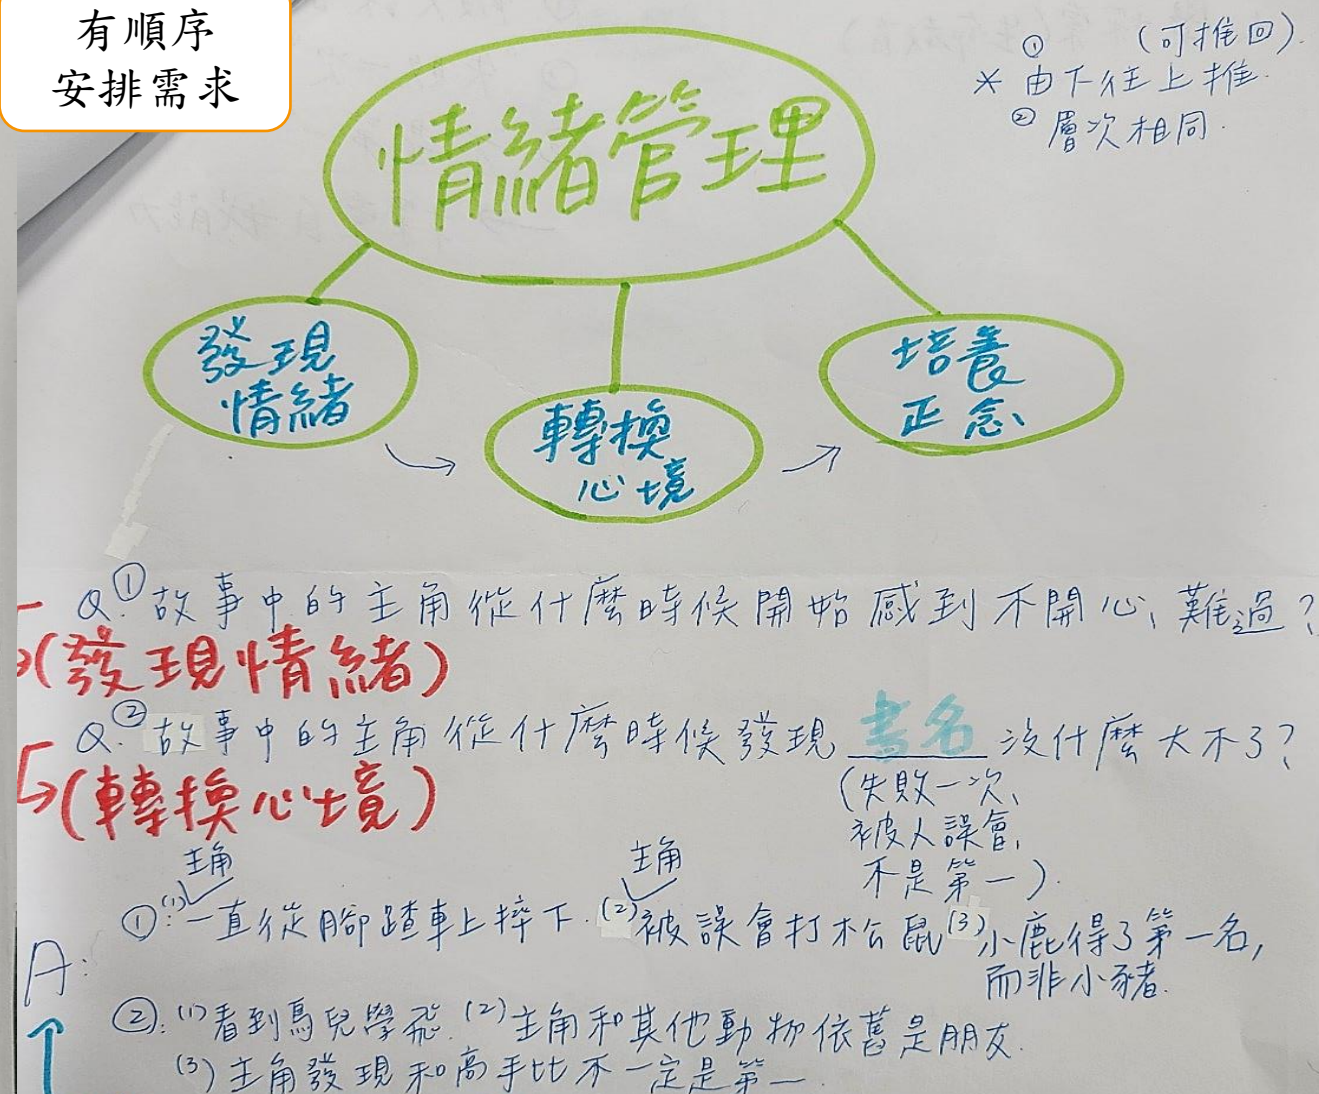 有順序
安排需求
① (可推回).
* 由下往上推.
② 層次相同.
情緒管理
發現
情緒
轉換
心境
培養
正念
Q.① 故事中的主角從什麼時候開始感到不開心、難過?
(發現情緒)
Q.② 故事中的主角從什麼時候發現 書名 沒什麼大不了?
(轉換心境)
(失敗一次、
被人誤會、
不是第一).
主角
主角
A:
①:(1) 一直從腳踏車上摔下. (2) 被誤會打松鼠 (3) 小鹿得了第一名,
而非小豬.
②: (1) 看到鳥兒學飛. (2) 主角和其他動物依舊是朋友.
(3) 主角發現和高手比不一定是第一.